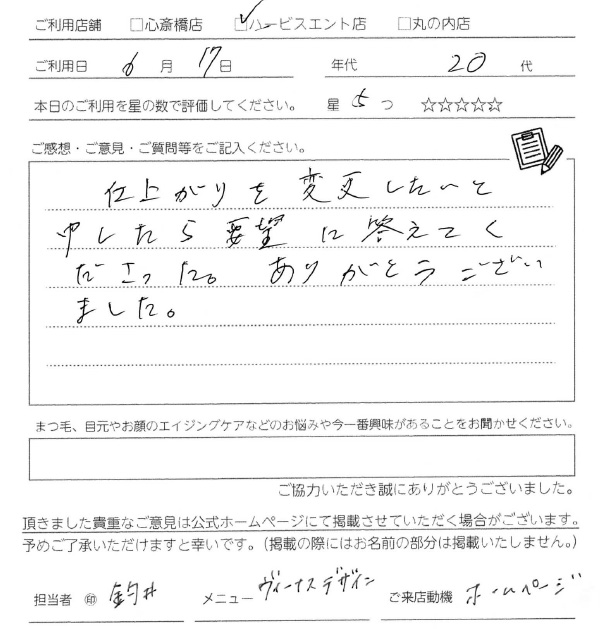 ご利用店舗 □心斎橋店 ☑ハービスエント店 □丸の内店
ご利用日 6 月 17日 年代 20 代
本日のご利用を星の数で評価してください。 星 5 つ ☆☆☆☆☆
ご感想・ご意見・ご質問等をご記入ください。
仕上がりを変更したいと
申したら要望に答えてく
ださった。ありがとうござい
ました。
まつ毛、目元やお顔のエイジングケアなどのお悩みや今一番興味があることをお聞かせください。
ご協力いただき誠にありがとうございました。
頂きました貴重なご意見は公式ホームページにて掲載させていただく場合がございます。
予めご了承いただけますと幸いです。（掲載の際にはお名前の部分は掲載いたしません。）
担当者 ㊞ 釣井 メニュー ヴィーナスデザイン ご来店動機 ホームページ